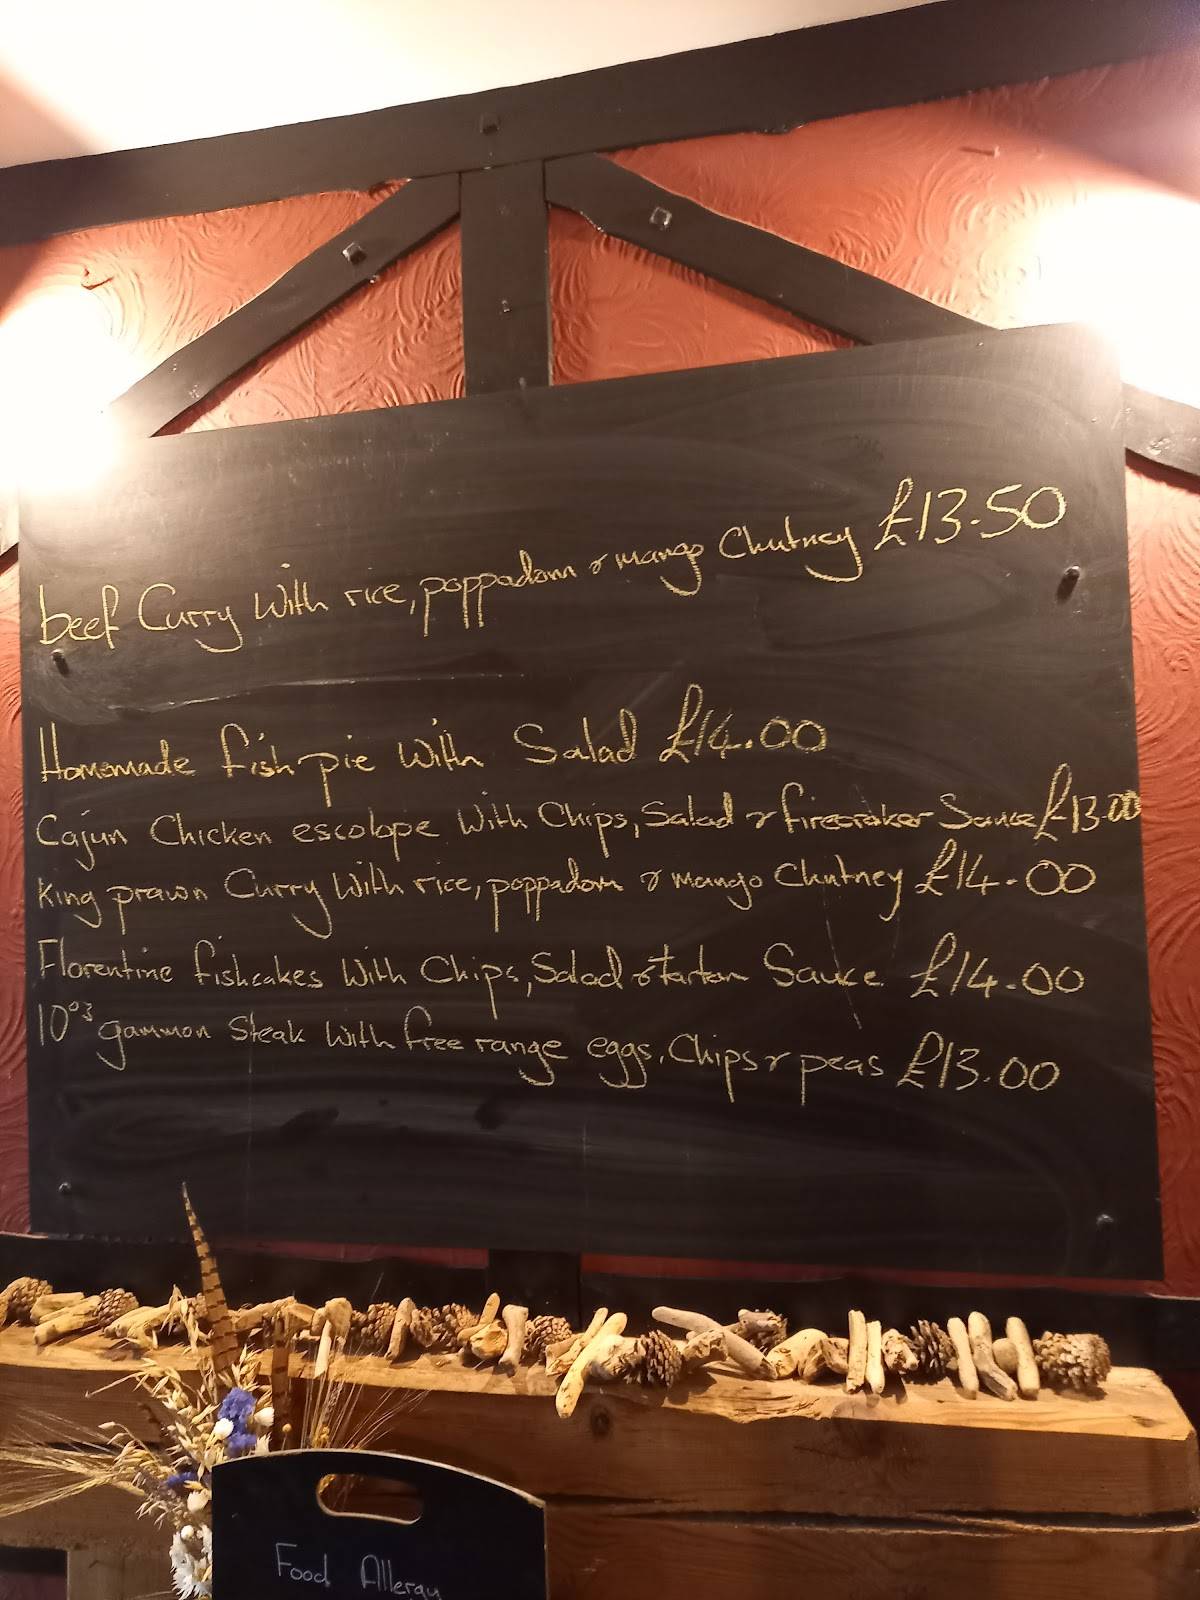 beef Curry With rice, poppadom & mango Chutney £13.50
Homemade fish pie With Salad £14.00
Cajun Chicken escolope With Chips, Salad & firecraker Sauce £13.00
King prawn Curry With rice, poppadom & mango Chutney £14.00
Florentine fishcakes With Chips, Salad & tartar Sauce £14.00
10oz gammon Steak With free range eggs, Chips & peas £13.00
Food Allergy